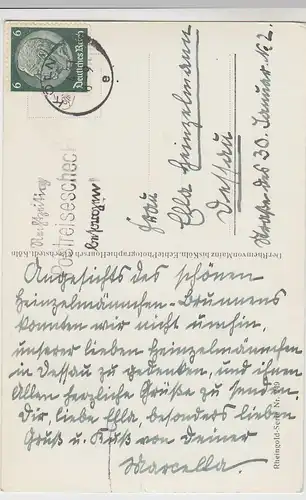 6
Deutsches Reich
6
KOELN
e
Rechtzeitig
Postreisescheck
besorgen!
Frau
Ella Heinzelmann
Dessau
Straße des 30. Januar N. 2.
Der Rhein von Mainz bis Köln. Echte Photographie Hoursch & Bechstedt, Köln
Rheingold-Serie Nr.
Angesichts des schönen
Heinzelmännchen-Brunnens
konnten wir nicht umhin,
unserer lieben Heinzelmännchen
in Dessau zu gedenken, und ihnen
Allen herzliche Grüße zu senden.
Dir, liebe Ella, besonders lieben
Gruß u. Kuß von Deiner
Marcella.